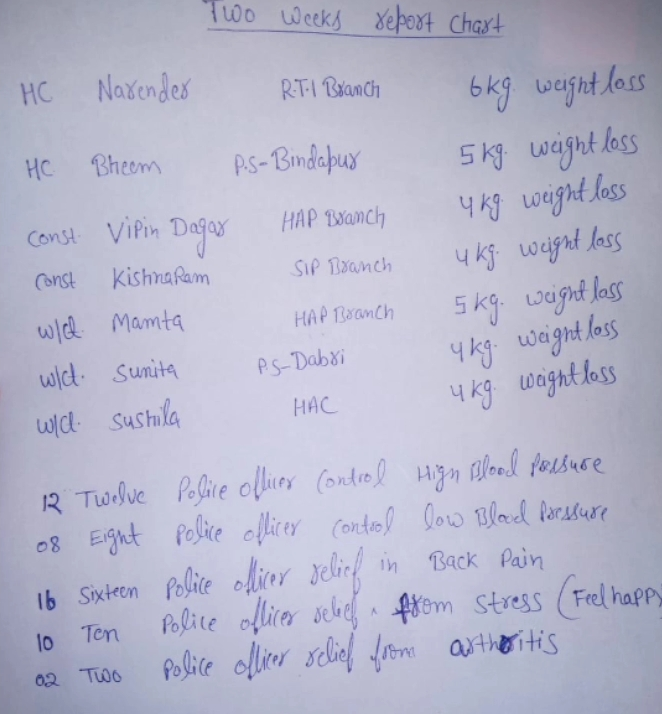 Two weeks report chart
HC Narender R.T.I Branch 6 kg. weight loss
HC Bheem P.S-Bindapur 5 kg. weight loss
Const. Vipin Dagar HAP Branch 4 kg. weight loss
Const KishnaRam SIP Branch 4 kg. weight loss
w/ct. Mamta HAP Branch 5 kg. weight loss
w/ct. Sunita P.S-Dabri 4 kg. weight loss
w/ct. Sushila HAC 4 kg. weight loss
12 Twelve Police officer Control High Blood Pressure
08 Eight Police officer control low Blood Pressure
16 Sixteen Police officer relief in Back Pain
10 Ten Police officer relief from stress (Feel happy
02 Two Police officer relief from arthritis